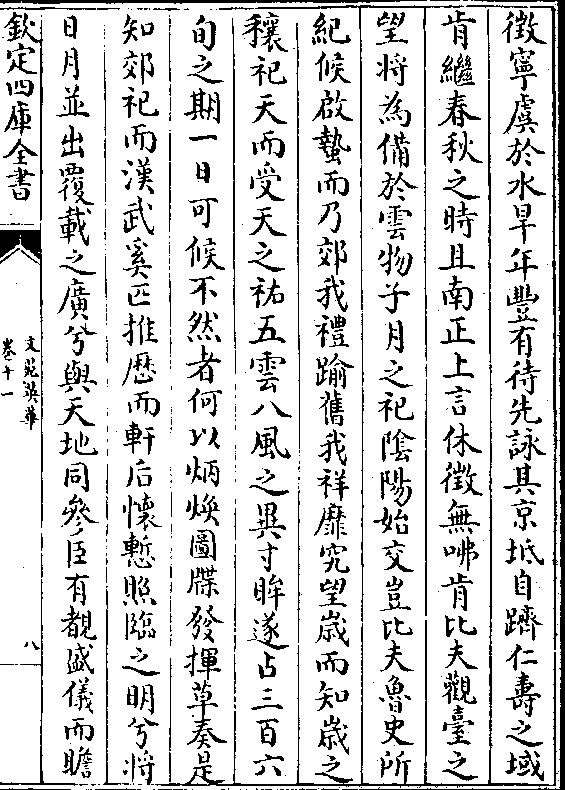 徴寧虞於水旱年豐有待先詠其京坻自躋仁壽之域
肯繼春秋之時且南正上言休徴無咈肯比夫觀臺之
望將為備於雲物子月之祀陰陽始交豈比夫魯史所
紀候啟蟄而乃郊我禮踰舊我祥靡究望歲而知歲之
穰祀天而受天之祐五雲八風之異寸眸遂占三百六
旬之期一日可候不然者何以炳煥圖牒發揮草奏是
知郊祀而漢武奚匹推厯而軒后懷慙照臨之明兮將
日月並出覆載之廣兮與天地同參臣有覩盛儀而瞻
欽定四庫全書
文苑英華
卷十一
八